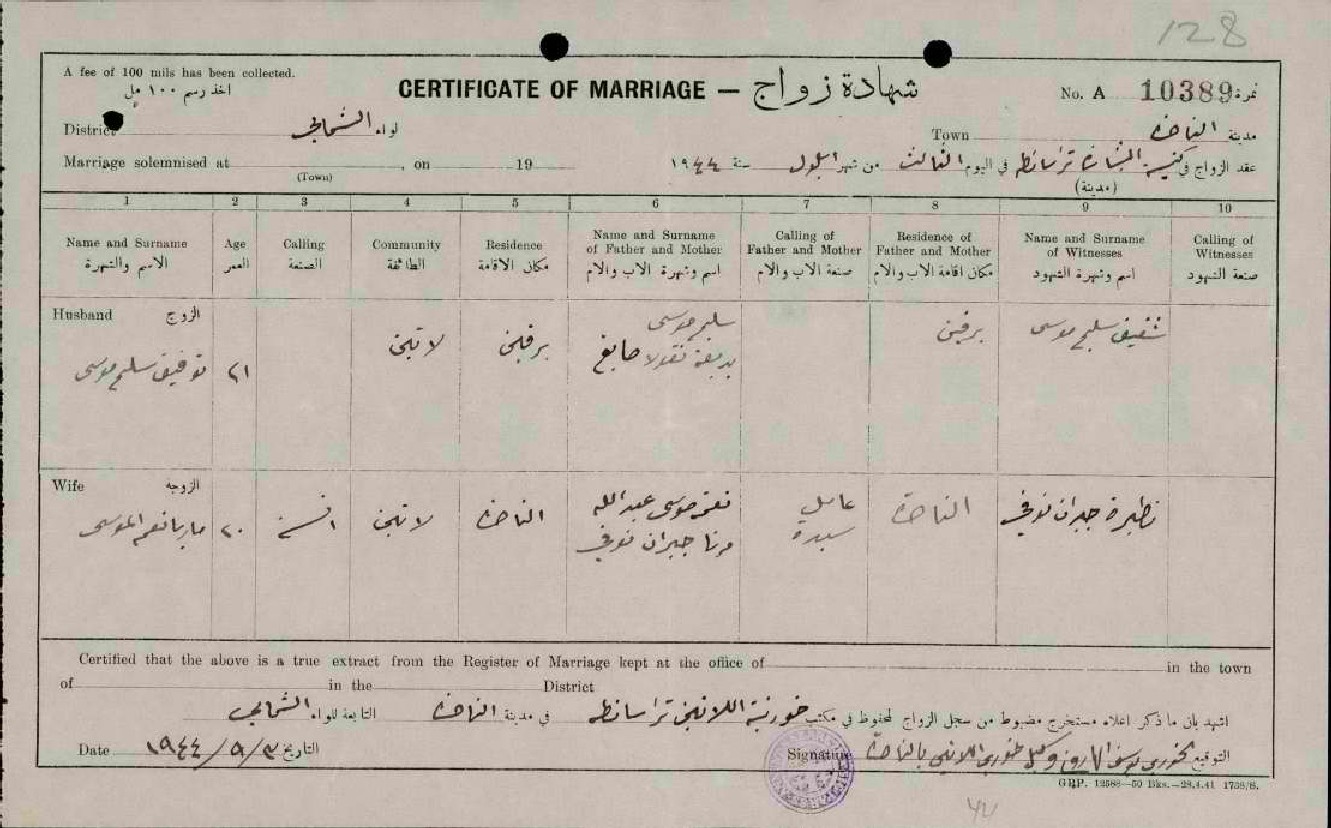 128
A fee of 100 mils has been collected.
اخذ رسم ١٠٠ مل
CERTIFICATE OF MARRIAGE — شهادة زواج
No. A 10389 نمرة
District لواء الشمالي
Town مدينة الناصرة
Marriage solemnised at , on 19
(Town)
عقد الزواج في كنيسة البشارة تراسانطه في اليوم الثالث من شهر ايلول سنة ١٩٤٤
(مدينة)
1 2 3 4 5 6 7 8 9 10
Name and Surname
الاسم والشهرة
Age
العمر
Calling
الصنعة
Community
الطائفة
Residence
مكان الاقامة
Name and Surname
of Father and Mother
اسم وشهرة الاب والام
Calling of
Father and Mother
صنعة الاب والام
Residence of
Father and Mother
مكان اقامة الاب والام
Name and Surname
of Witnesses
اسم وشهرة الشهود
Calling of
Witnesses
صنعة الشهود
Husband الزوج
توفيق سليم موسى
٢١
لاتين
برقين
سليم موسى
بديعة نقولا صايغ
برقين
شفيق سليم موسى
Wife الزوجه
ماريا نعمه الموسى
٢٠
انسة
لاتين
الناصرة
نعمه موسى عبدالله
مرتا جبران نوفي
عامل
سيدة
الناصرة
نظيرة جبران نوفي
Certified that the above is a true extract from the Register of Marriage kept at the office of in the town
of in the District
اشهد بان ما ذكر اعلاه مستخرج مضبوط من سجل الزواج المحفوظ في مكتب خورنية اللاتين تراسانطه في مدينة الناصرة التابعة للواء الشمالي
Date ١٩٤٤/٩/٣ التاريخ
Signature التوقيع الخوري يوسف الماروني وكيل خوري اللاتين بالناصرة
GRP. 12588—50 Bks.—28.4.41 1758/S.